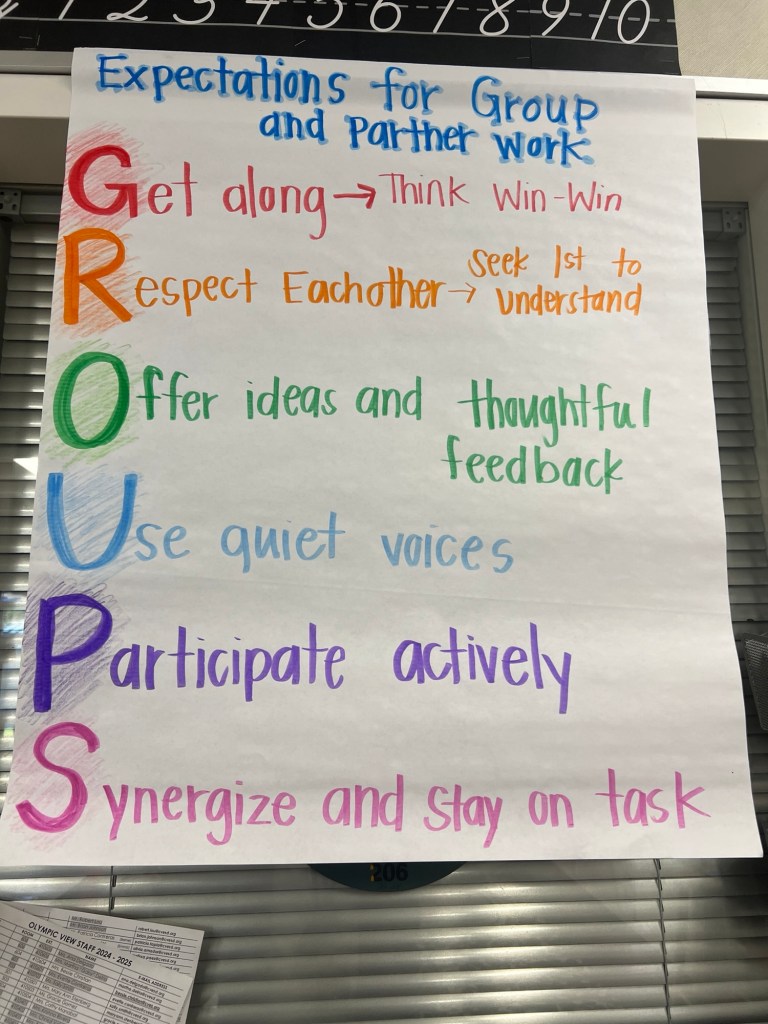 1 2 3 4 5 6 7 8 9 10
Expectations for Group
and Partner work
Get along → Think Win-Win
Respect Eachother → Seek 1st to
understand
Offer ideas and thoughtful
feedback
Use quiet voices
Participate actively
Synergize and stay on task
206
OLYMPIC VIEW STAFF 2024 - 2025
ROOM
EXT
NAME
E-MAIL ADDRESS